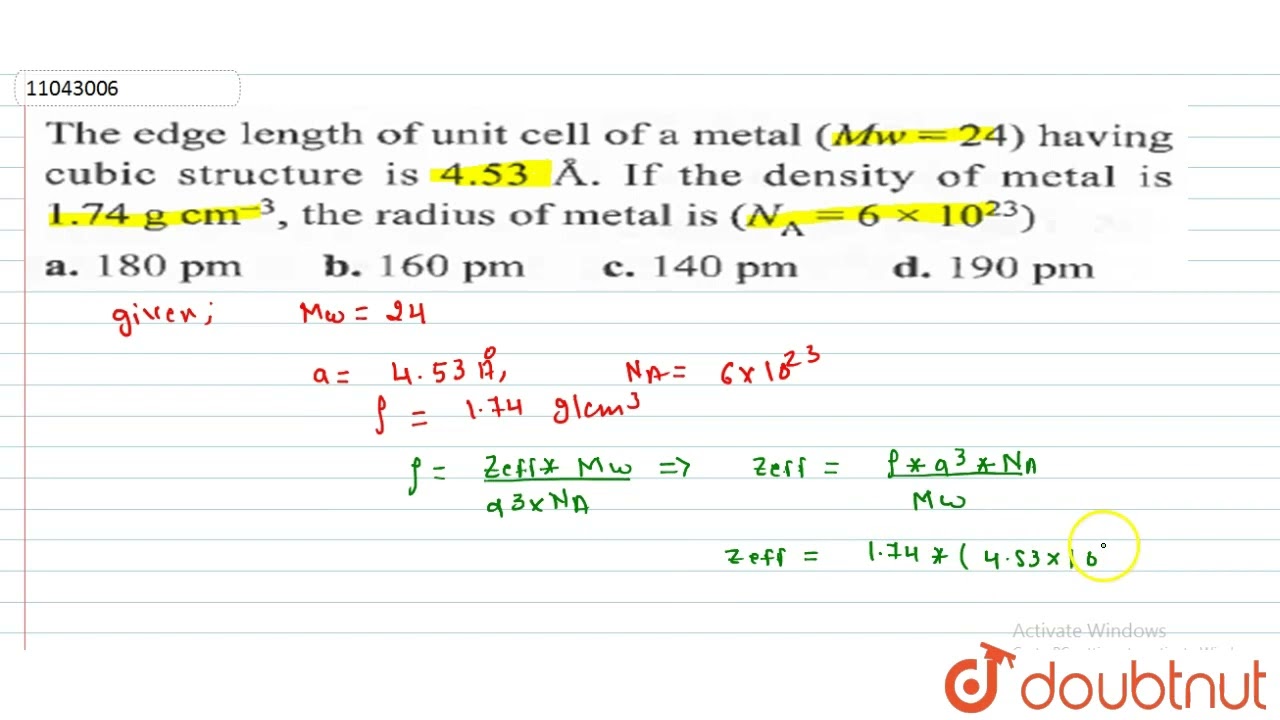 11043006
The edge length of unit cell of a metal (Mw = 24) having
cubic structure is 4.53 Å. If the density of metal is
1.74 g cm⁻³, the radius of metal is (N_A = 6 × 10²³)
a. 180 pm b. 160 pm c. 140 pm d. 190 pm
given; Mw = 24
a = 4.53 Å, NA = 6×10²³
ρ = 1.74 g/cm³
ρ = Zeff * Mw / a³×NA => Zeff = ρ * a³ * NA / Mw
Zeff = 1.74 * ( 4.53×10
Activate Windows
doubtnut